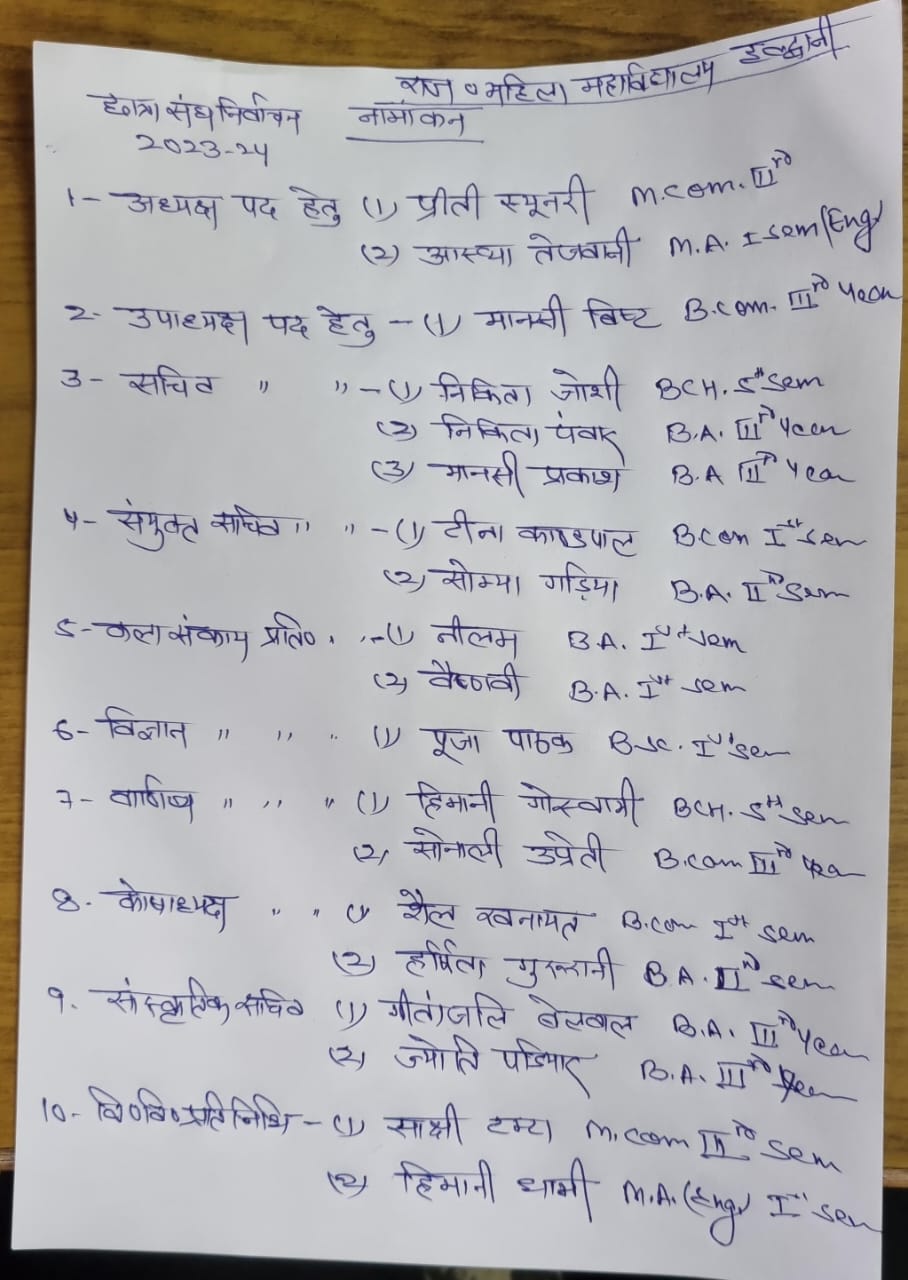 राज० महिला महाविद्यालय हल्द्वानी
छात्रा संघ निर्वाचन नामांकन
2023-24
1- अध्यक्ष पद हेतु (1) प्रीती स्यूनरी M.com. II rd
(2) आस्था तेजवानी M.A. I sem (Eng)
2- उपाध्यक्ष पद हेतु - (1) मानसी बिष्ट B.com. III rd Year
3- सचिव " " - (1) निकिता जोशी BCH. 5th sem
(2) निकिता पंवार B.A. III rd Year
(3) मानसी प्रकाश B.A III rd Year
4- संयुक्त सचिव " " - (1) टीना काण्डपाल Bcom Ist sem
(2) सोम्या गड़िया B.A. II nd Sem
5- कला संकाय प्रति० " " - (1) नीलम B.A. Ist sem
(2) वैष्णवी B.A. Ist sem
6- विज्ञान " " " (1) पूजा पाठक B.sc. Ist sem
7- वाणिज्य " " " (1) हिमानी गोस्वामी BCH. 5th sem
(2) सोनाली उप्रेती B.com III rd Year
8- कोषाध्यक्ष " " (1) शैल खनायत B.com Ist sem
(2) हर्षिता गुरुरानी B.A. II nd sem
9. सांस्कृतिक सचिव (1) गीतांजलि बेलवाल B.A. III rd Year
(2) ज्योति पडियार B.A. III rd Year
10- वि०वि० प्रतिनिधि - (1) साक्षी टम्टा M.com III rd sem
(2) हिमानी धामी M.A. (Eng) Ist sem